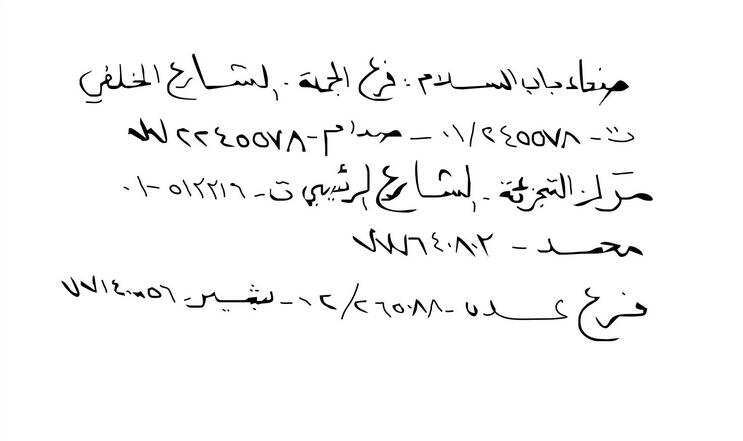 صنعاء باب السلام : فرع الجملة - الشارع الخلفي
ت - ٠١/٢٤٥٥٧٨ - صدام - ٧٧٢٢٤٥٥٧٨
مركز التجزئة - الشارع الرئيسي ت - ٠١-٥١٢٢١٦
محمد - ٧٧٧٦٤٠٨٠٢
فرع عدن - ٠٢/٢٦٥٠٨٨ - بشير -